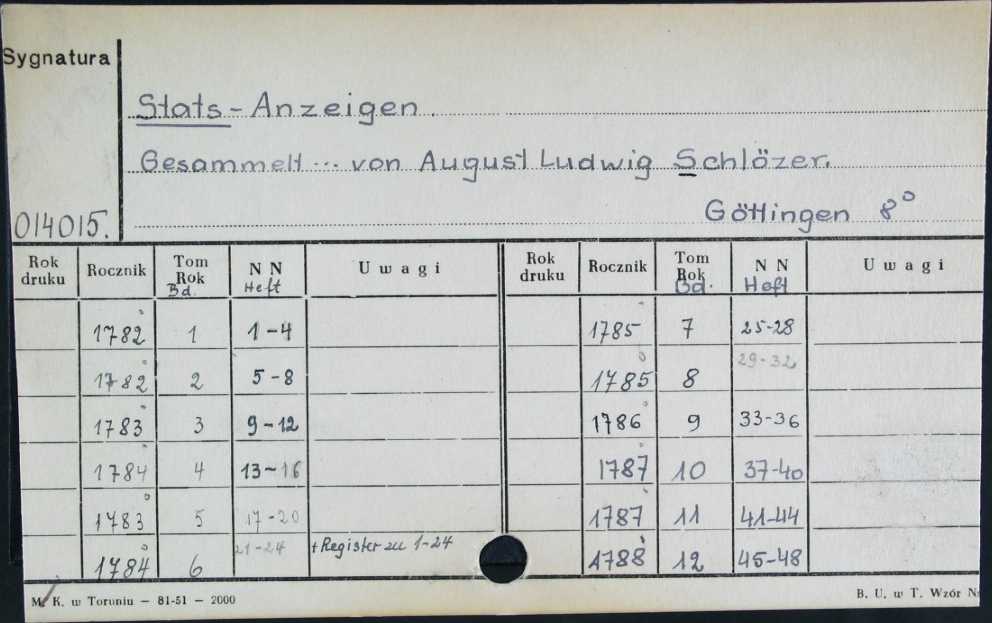 Sygnatura
Stats-Anzeigen.
Gesammelt ... von August Ludwig Schlözer.
014015.
Göttingen 8°
Rok druku Rocznik Tom Rok Bd. N N Heft Uwagi Rok druku Rocznik Tom Rok Bd. N N Heft Uwagi
1782 1 1-4 1785 7 25-28
1782 2 5-8 1785 8 29-32
1783 3 9-12 1786 9 33-36
1784 4 13-16 1787 10 37-40
1783 5 17-20 1787 11 41-44
1784 6 21-24 + Register zu 1-24 1788 12 45-48
M. K. w Toruniu — 81-51 — 2000 B. U. w T. Wzór Nr